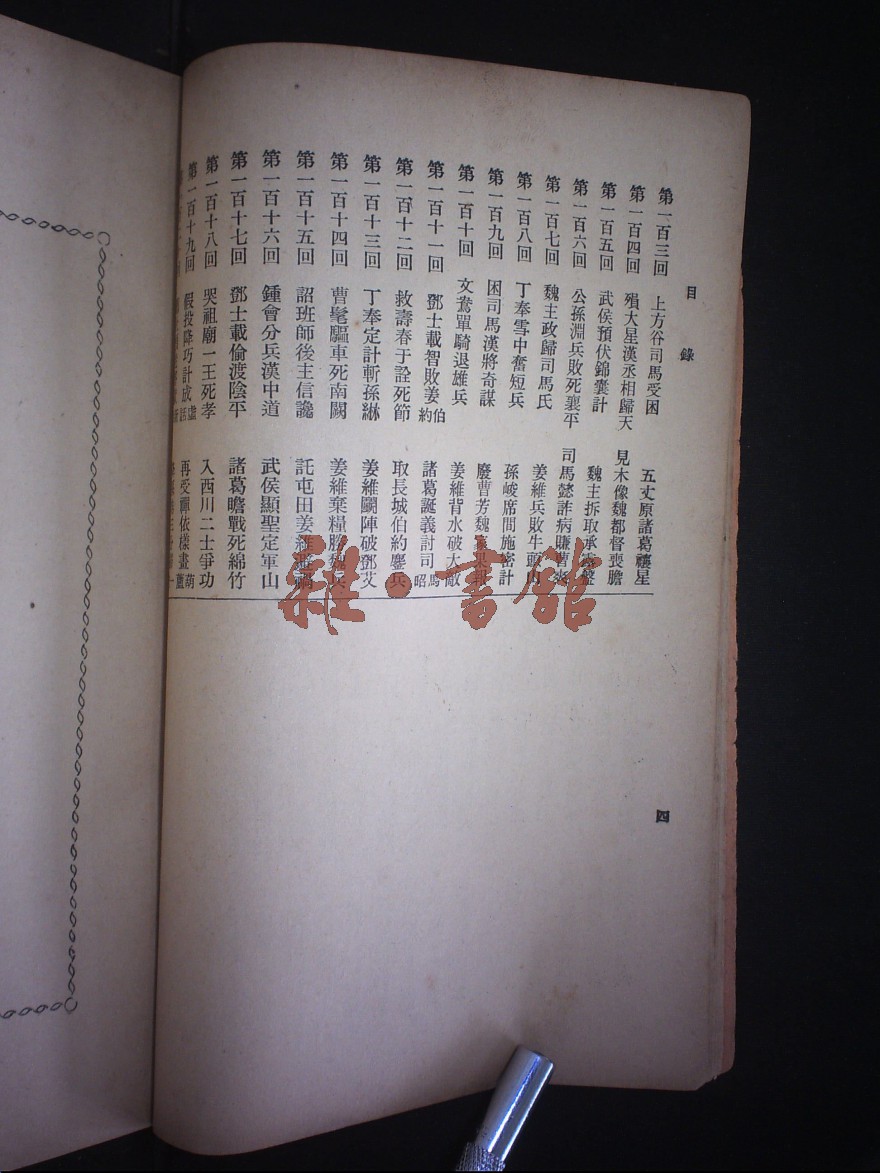 目錄
四
第一百三回 上方谷司馬受困 五丈原諸葛禳星
第一百四回 殞大星漢丞相歸天 見木像魏都督喪膽
第一百五回 武侯預伏錦囊計 魏主拆取承露盤
第一百六回 公孫淵兵敗死襄平 司馬懿詐病賺曹爽
第一百七回 魏主政歸司馬氏 姜維兵敗牛頭山
第一百八回 丁奉雪中奮短兵 孫峻席間施密計
第一百九回 困司馬漢將奇謀 廢曹芳魏家果報
第一百十回 文鴦單騎退雄兵 姜維背水破大敵
第一百十一回 鄧士載智敗姜伯約 諸葛誕義討司馬昭
第一百十二回 救壽春于詮死節 取長城伯約鏖兵
第一百十三回 丁奉定計斬孫綝 姜維鬭陣破鄧艾
第一百十四回 曹髦驅車死南闕 姜維棄糧勝魏兵
第一百十五回 詔班師後主信讒 託屯田姜維避禍
第一百十六回 鍾會分兵漢中道 武侯顯聖定軍山
第一百十七回 鄧士載偷渡陰平 諸葛瞻戰死綿竹
第一百十八回 哭祖廟一王死孝 入西川二士爭功
第一百十九回 假投降巧計成虛話 再受禪依樣畫葫蘆
雜·書館